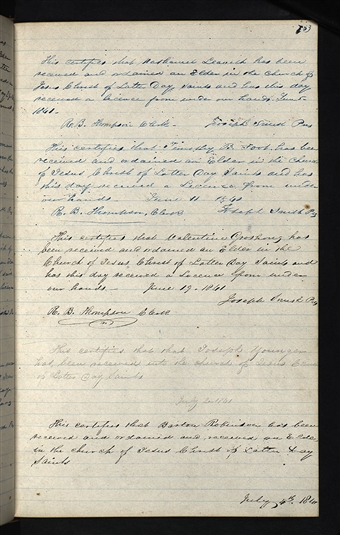 This certifies that Nathaniel Leavitt has been
received and ordained an Elder in the Church of
Jesus Christ of Latter Day Saints and has this day
received a license from under our hands June
1841.
R. B. Thompson Clerk. Joseph Smith Pres
This certifies that Timothy B. Foot has been
received and ordained an Elder in the Church
of Jesus Christ of Latter Day Saints and has
this day received a License from under
our hands June 11 1841
R. B. Thompson, Clerk Joseph Smith Ps
This certifies that Valentine
been received and ordained an Elder in the
Church of Jesus Christ of Latter Day Saints and
has this day received a License from under
our hands - June 19. 1841
Joseph Smith Ps
R. B. Thompson Clerk
This certifies that that Joseph Younger
has been received into the church of Jesus Christ
of Latter Day Saints
July
This certifies that Barton Robinson has been
received and ordained and received an Elder
in the church of Jesus Christ of Latter Day
Saints
July 4th. 184